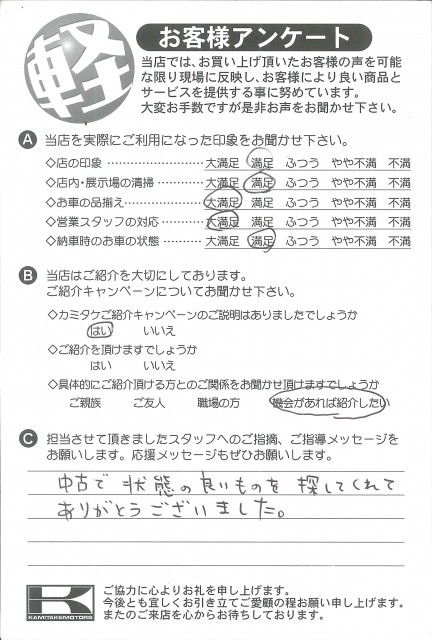 軽
お客様アンケート
当店では、お買い上げ頂いたお客様の声を可能
な限り現場に反映し、お客様により良い商品と
サービスを提供する事に努めています。
大変お手数ですが是非お声をお聞かせ下さい。
A 当店を実際にご利用になった印象をお聞かせ下さい。
◇店の印象 ……………………… 大満足 満足 ふつう やや不満 不満
◇店内・展示場の清掃 ………… 大満足 満足 ふつう やや不満 不満
◇お車の品揃え ………………… 大満足 満足 ふつう やや不満 不満
◇営業スタッフの対応 ………… 大満足 満足 ふつう やや不満 不満
◇納車時のお車の状態 ………… 大満足 満足 ふつう やや不満 不満
B 当店はご紹介を大切にしております。
ご紹介キャンペーンについてお聞かせ下さい。
◇カミタケご紹介キャンペーンのご説明はありましたでしょうか
はい いいえ
◇ご紹介を頂けますでしょうか
はい いいえ
◇具体的にご紹介頂ける方とのご関係をお聞かせ頂けますでしょうか
ご親族 ご友人 職場の方 機会があれば紹介したい
C 担当させて頂きましたスタッフへのご指摘、ご指導メッセージを
お願いします。応援メッセージもぜひお願いします。
中古で 状態の良いものを 探してくれて
ありがとうございました。
K
KAMITAKEMOTORS
ご協力に心よりお礼を申し上げます。
今後とも宜しくお引き立てご愛顧の程お願い申し上げます。
またのご来店を心からお待ちしております。